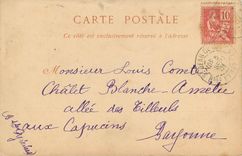 CARTE POSTALE
Ce côté est exclusivement réservé à l'adresse
10
Monsieur Louis
Châlet Blanche-Amélie
allée des Tilleuls
aux Capucins
Bayonne